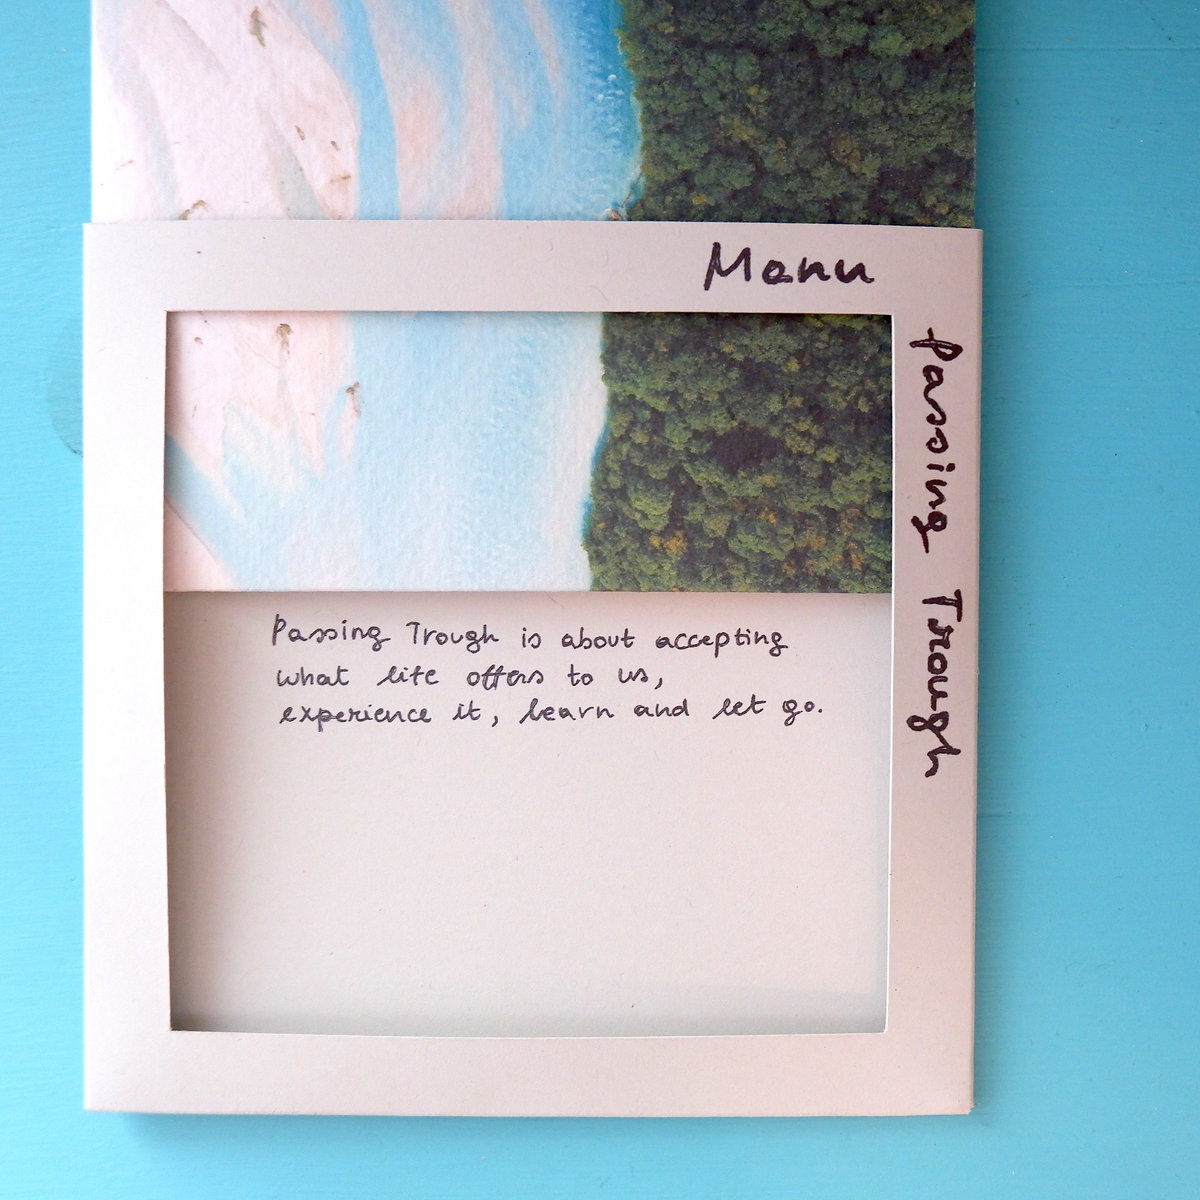 Manu
Passing Trough
Passing Trough is about accepting
what life offers to us,
experience it, learn and let go.